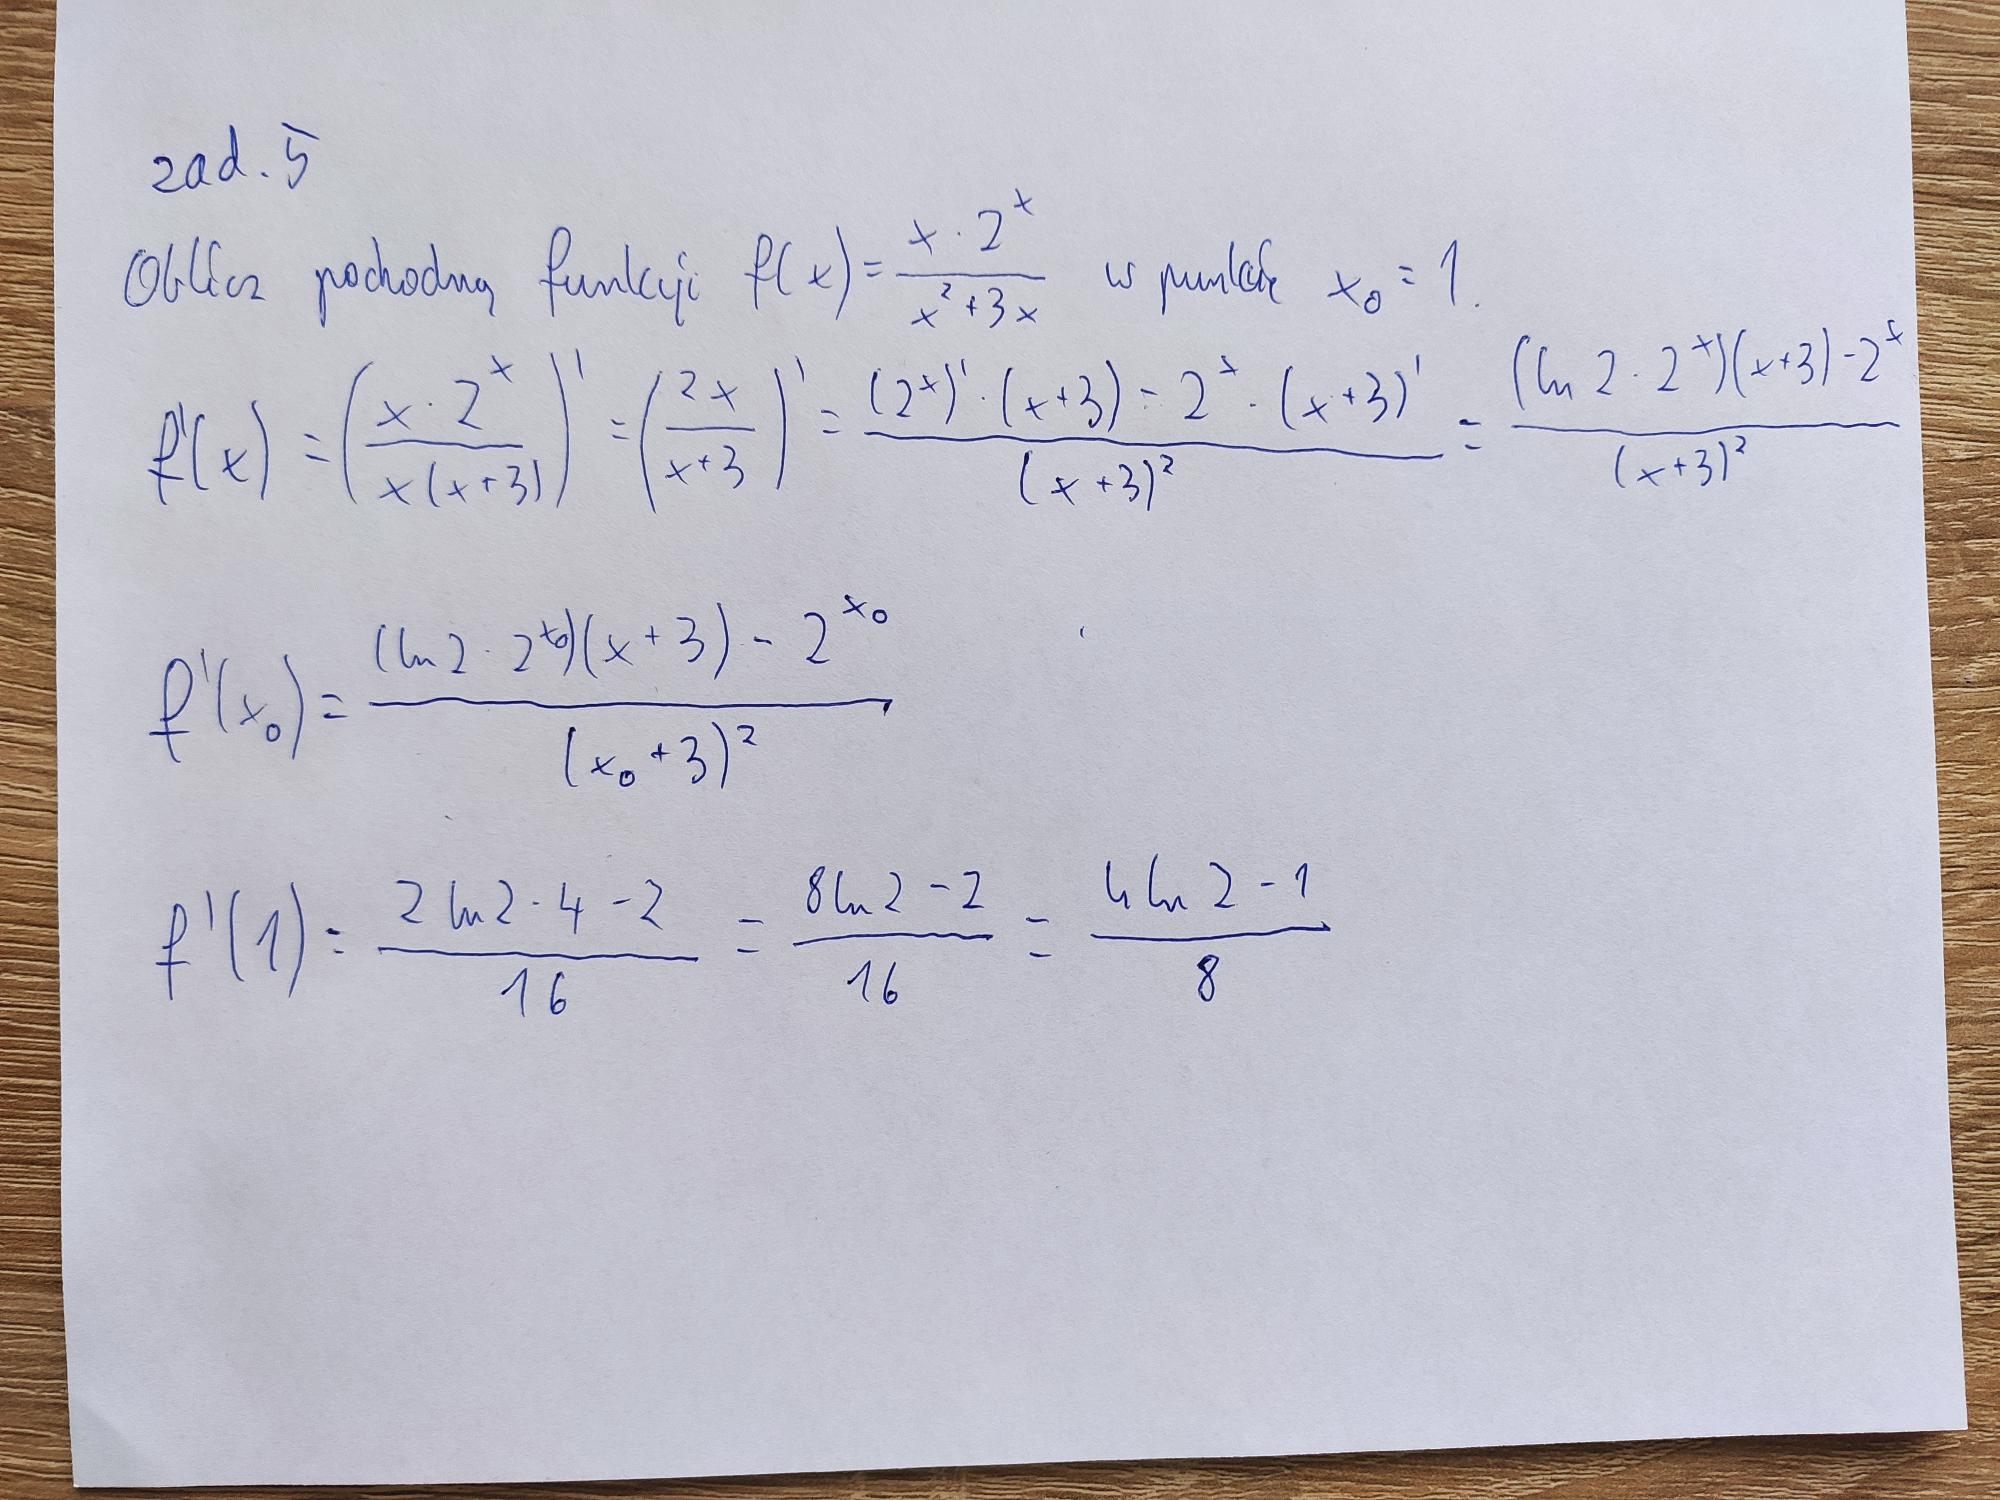 zad. 5
Oblicz pochodną funkcji f(x) = \frac{x \cdot 2^x}{x^2+3x} w punkcie x_0 = 1.
f'(x) = \left(\frac{x \cdot 2^x}{x(x+3)}\right)' = \left(\frac{2x}{x+3}\right)' = \frac{(2^x)' \cdot (x+3) - 2^x \cdot (x+3)'}{(x+3)^2} = \frac{(\ln 2 \cdot 2^x)(x+3) - 2^x}{(x+3)^2}
f'(x_0) = \frac{(\ln 2 \cdot 2^{x_0})(x+3) - 2^{x_0}}{(x_0+3)^2}
f'(1) = \frac{2 \ln 2 \cdot 4 - 2}{16} = \frac{8 \ln 2 - 2}{16} = \frac{4 \ln 2 - 1}{8}